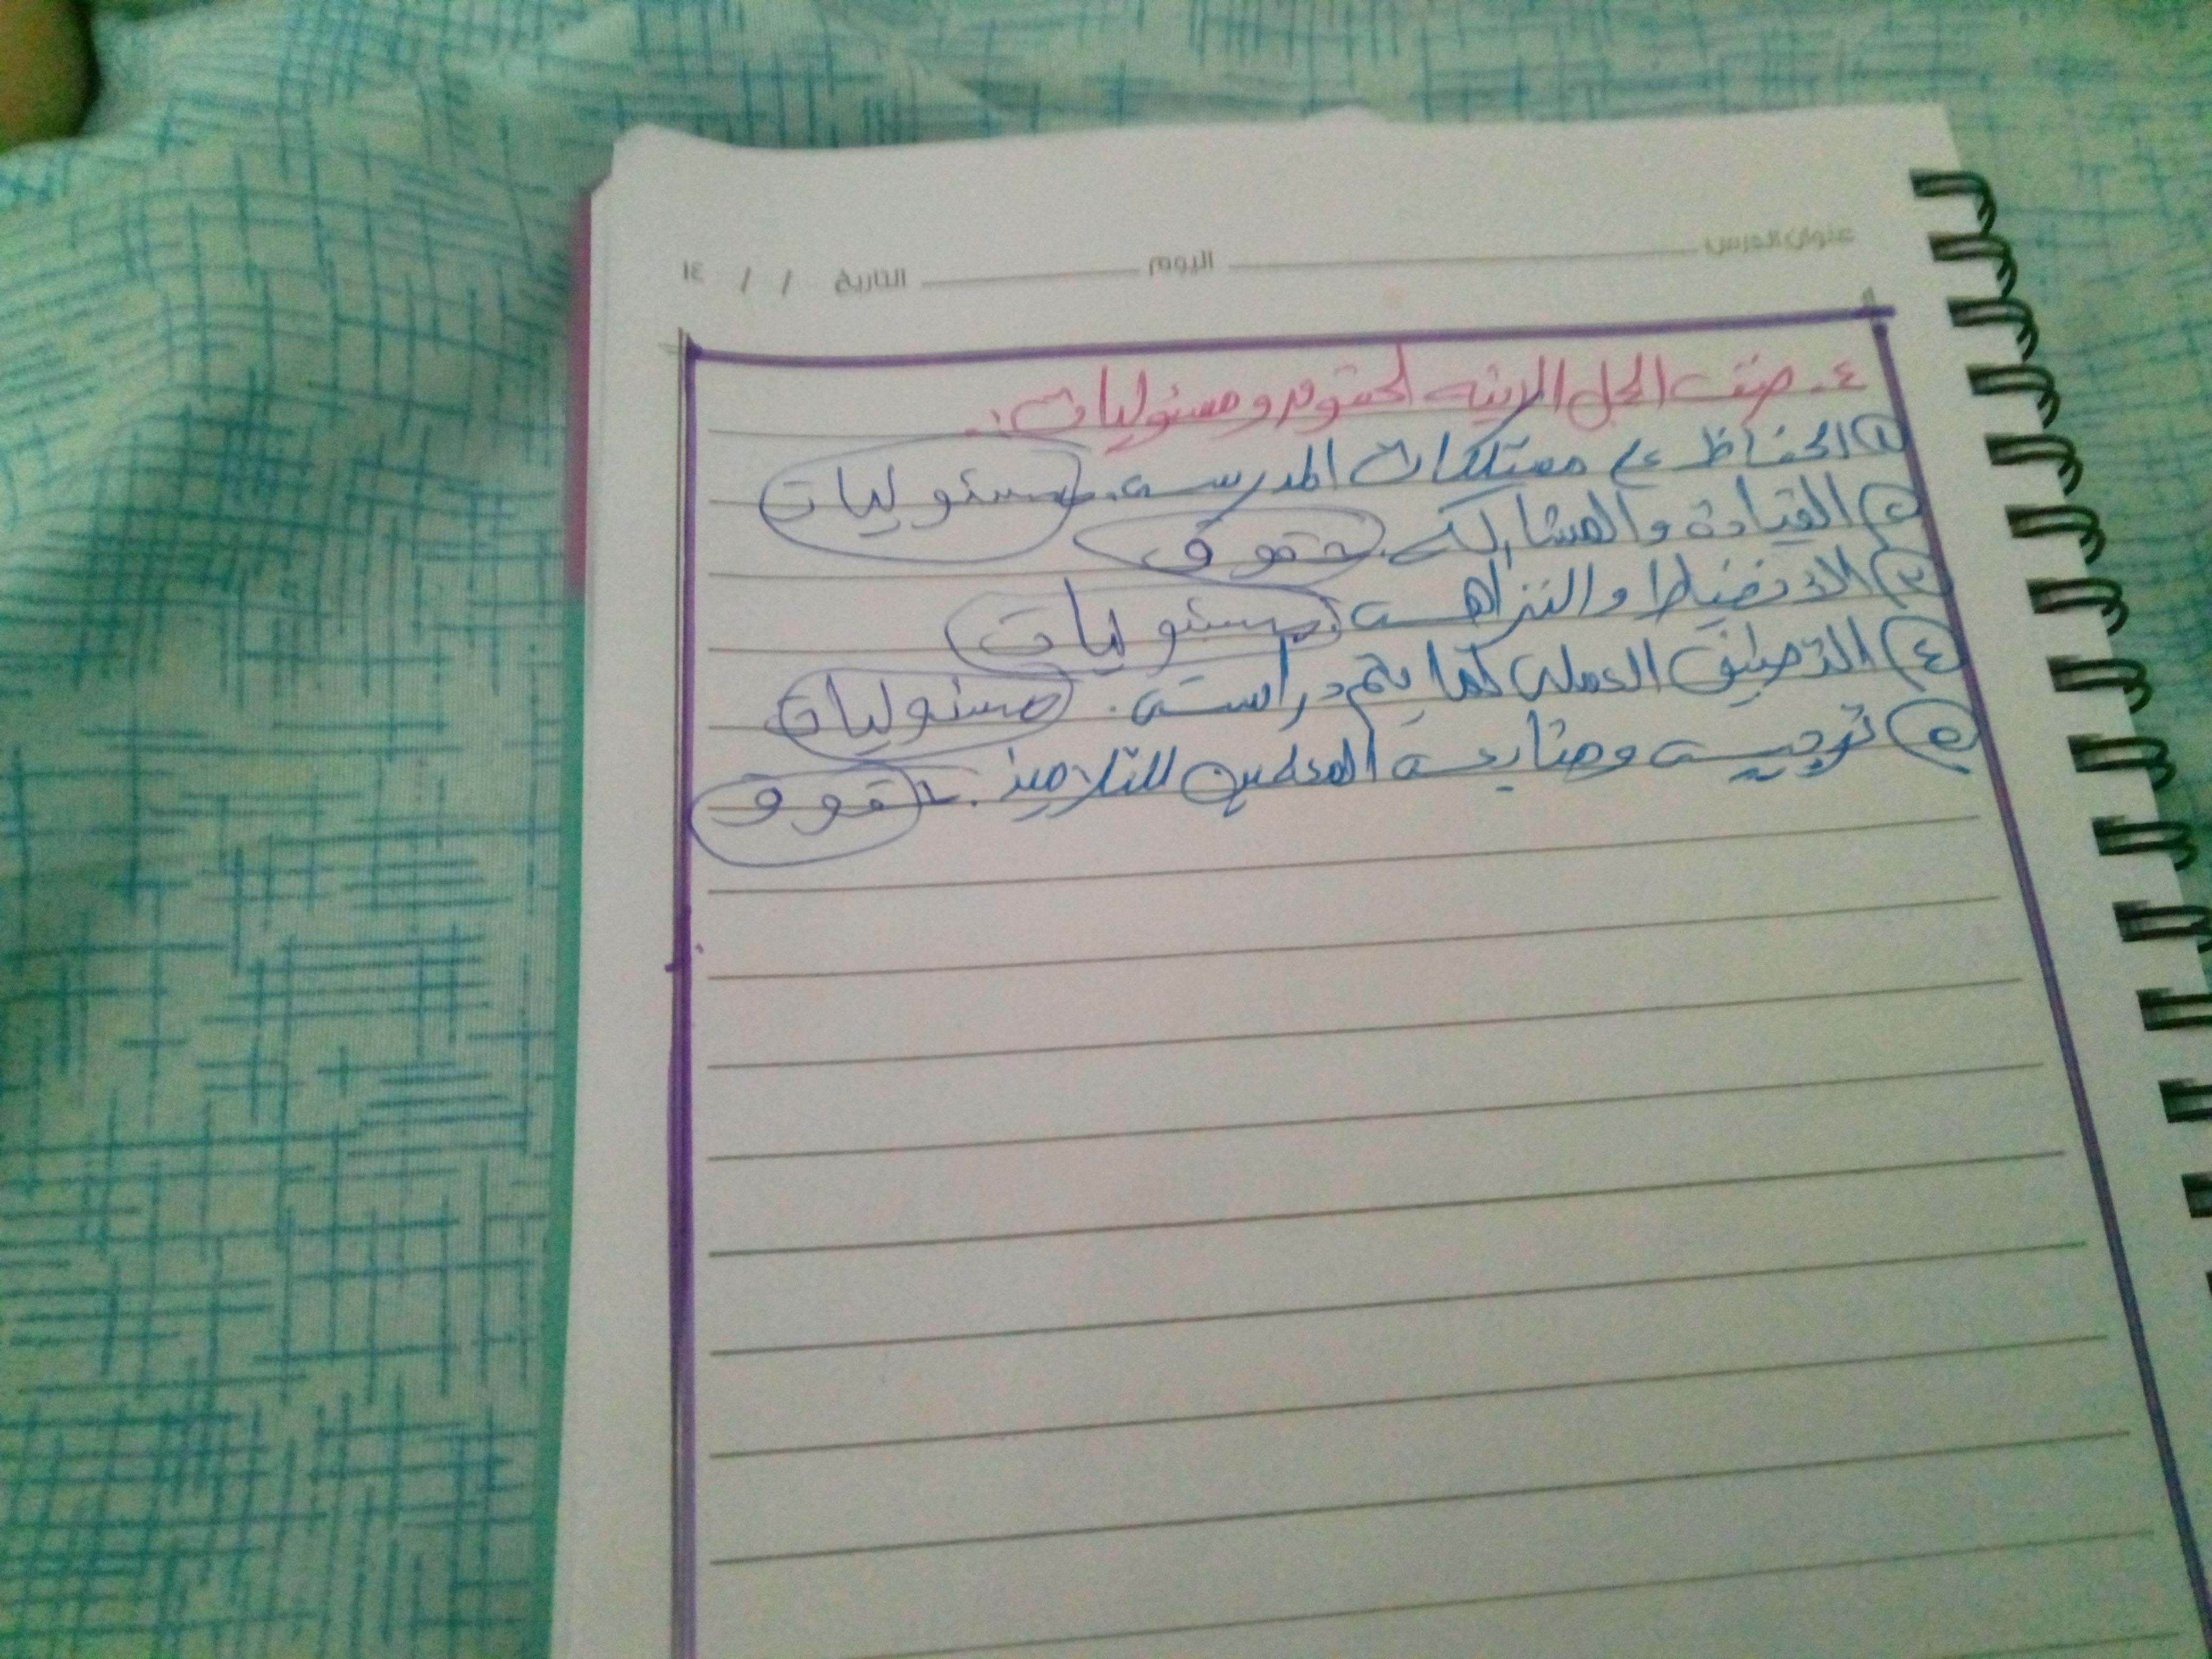 عنوان الدرس اليوم التاريخ / / ١٤
٤- صنف الجمل الاتيه لحقوق ومسئوليات :.
١ الحفاظ على ممتلكات المدرسه . مسئوليات
٢ القيادة والمشاركه . حقوق
٣ الانضباط والنزاهه . مسئوليات
٤ التطبيق العملى لما يتم دراسته . مسئوليات
٥ توجيه ومتابعه المعلمين للتلاميذ . حقوق